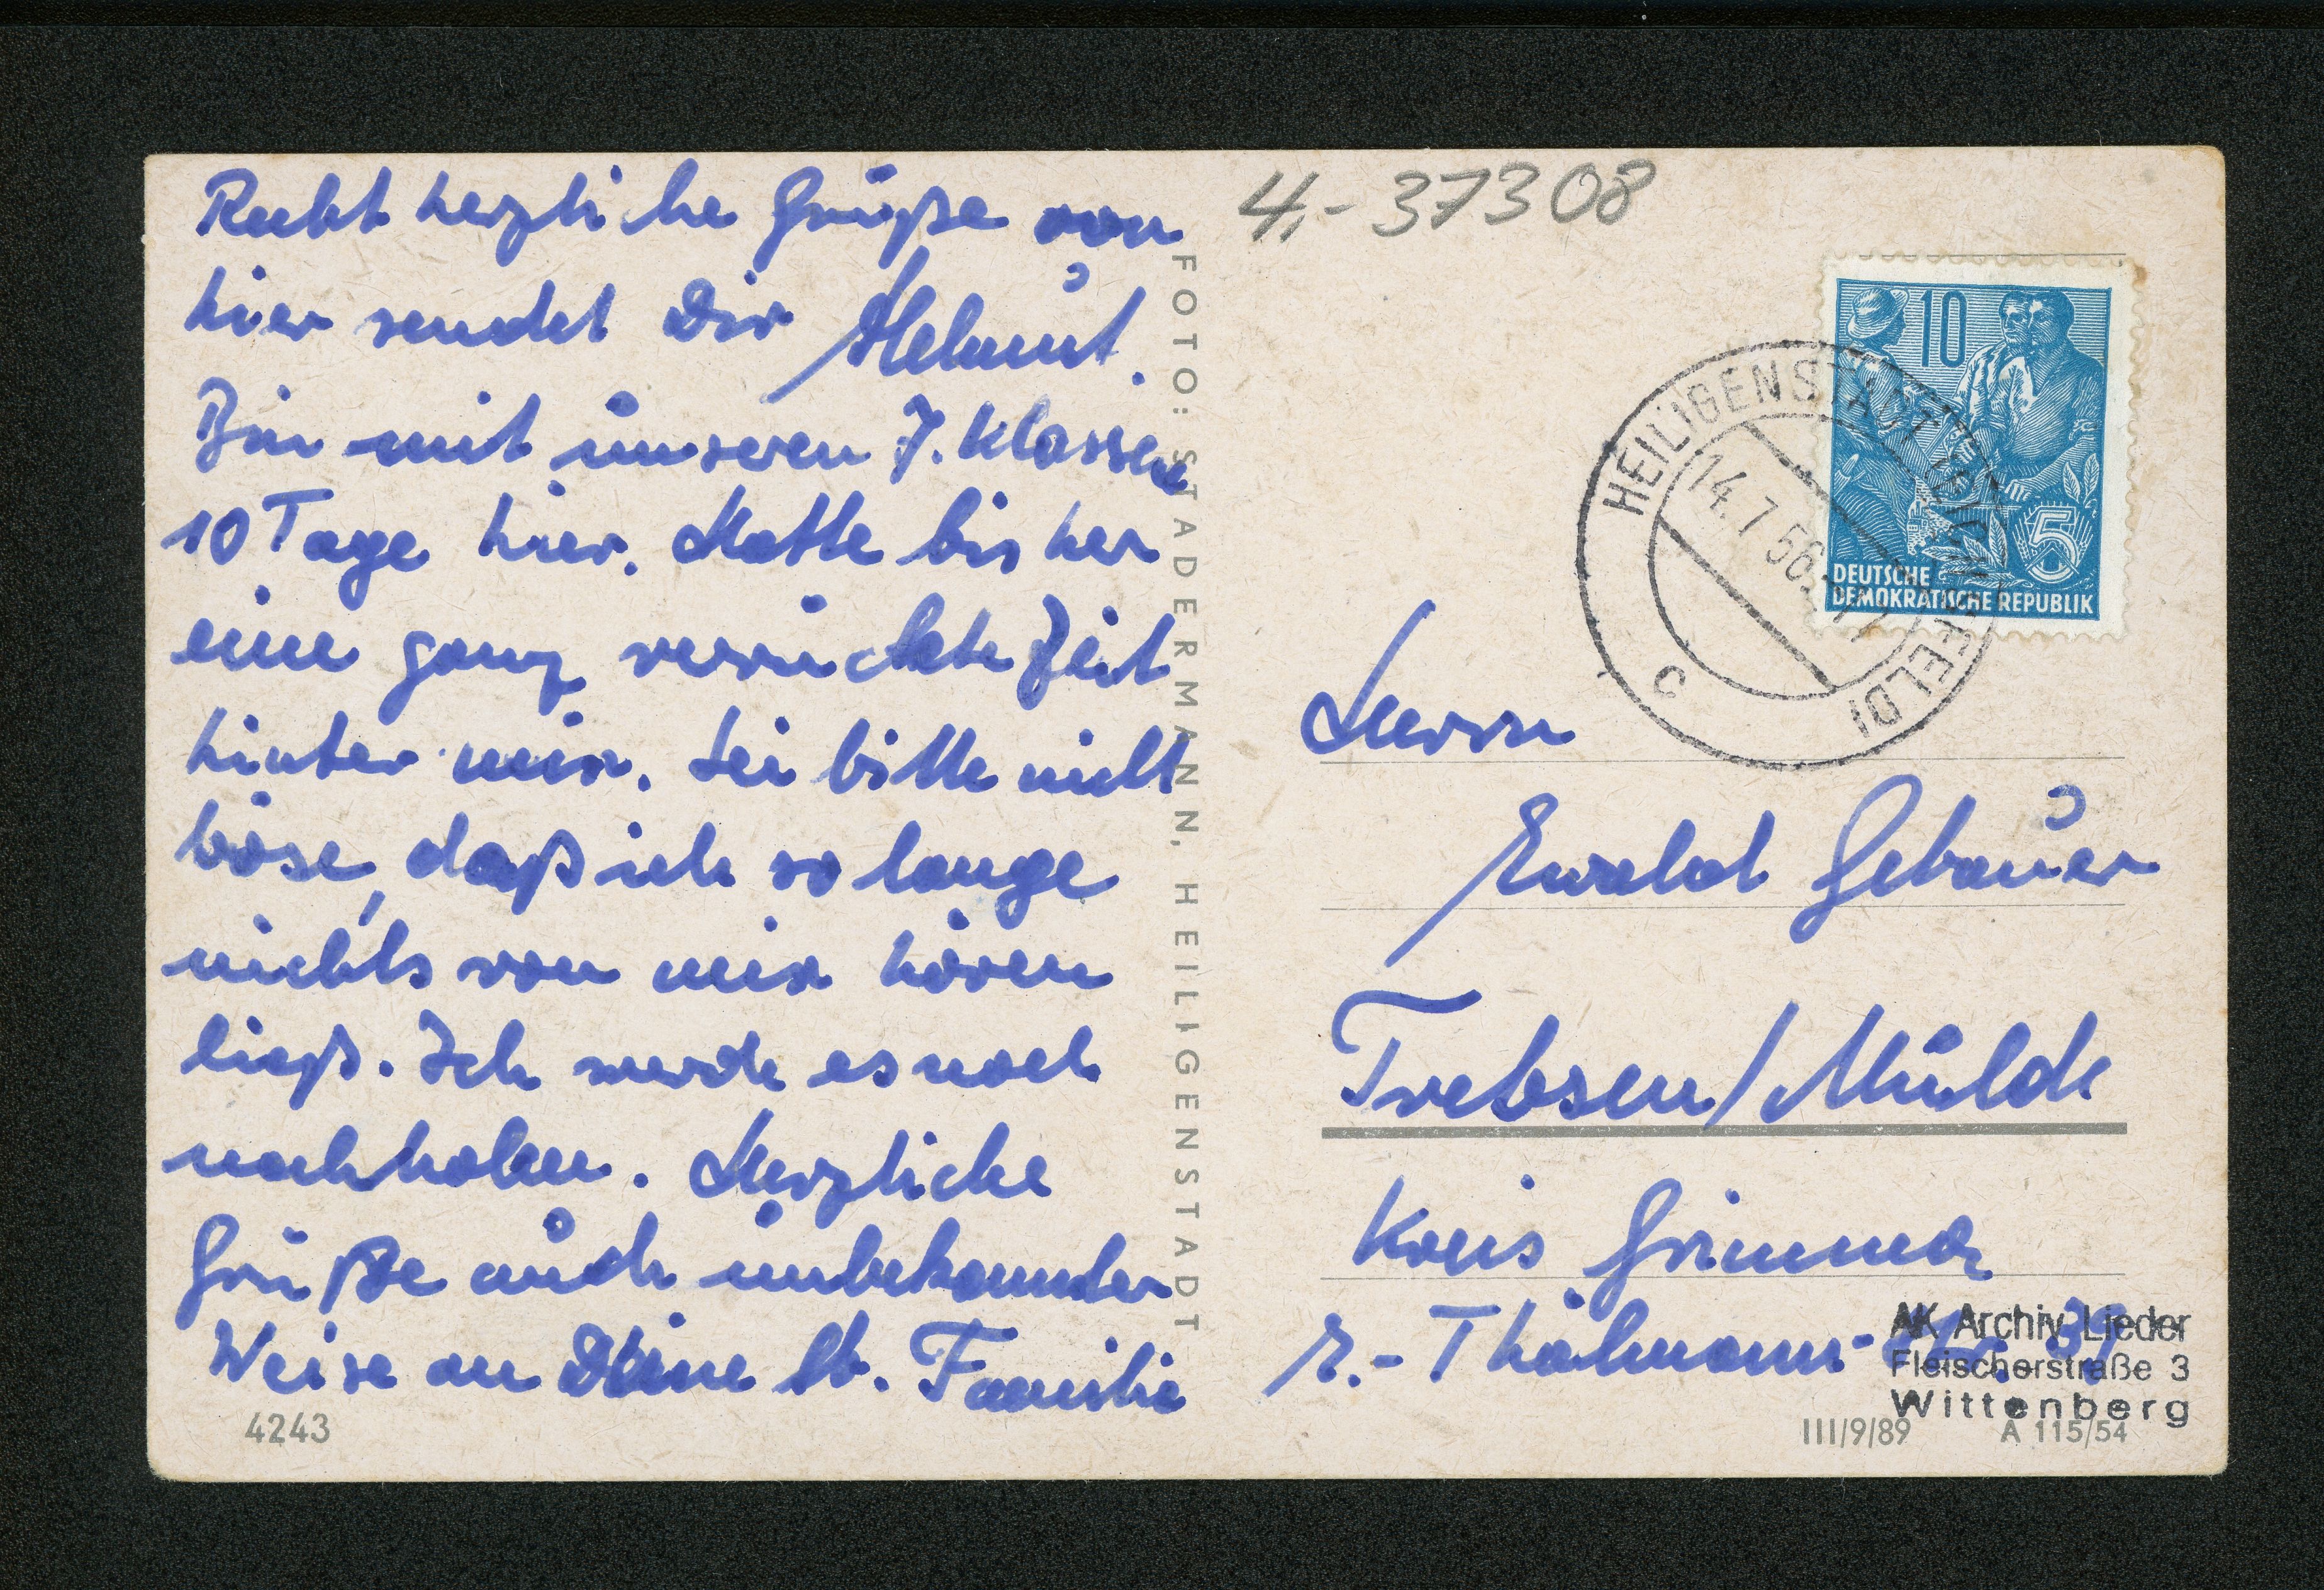 Recht herzliche Grüße von
hier sendet Dir Helmut.
Bin mit unseren 7. Klassen
10 Tage hier. Hatte bisher
eine ganz verrückte Zeit
hinter mir. Sei bitte nicht
böse, daß ich so lange
nichts von mir hören
ließ. Ich werde es noch
nachholen. Herzliche
Grüße auch unbekannter
Weise an Deine lb. Familie
4243
FOTO: STADERMANN, HEILIGENSTADT
4,- 37308
10
5
DEUTSCHE
DEMOKRATISCHE REPUBLIK
HEILIGENSTADT (EICHSFELD)
14.7.56
c
Herrn
Ewald Gebauer
Trebsen/Mulde
Kreis Grimma
E.-Thälmann- 39
AK Archiv Lieder
Fleischerstraße 3
Wittenberg
III/9/89 A 115/54